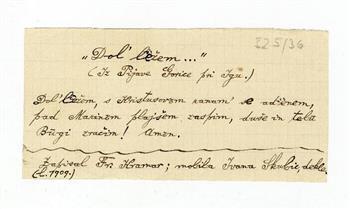 "Dol' ležem..."
I25/36
(Iz Pijave Gorice pri Igu.)
Dol' ležem, s Kristusovem ranam se adienem,
pad Marinem plajšem zaspim, duše in tela
Bûgi zračim! Amen.
Zapisal Fr. Kramar; molila Ivana Skubic, dekle.
(L. 1909.)